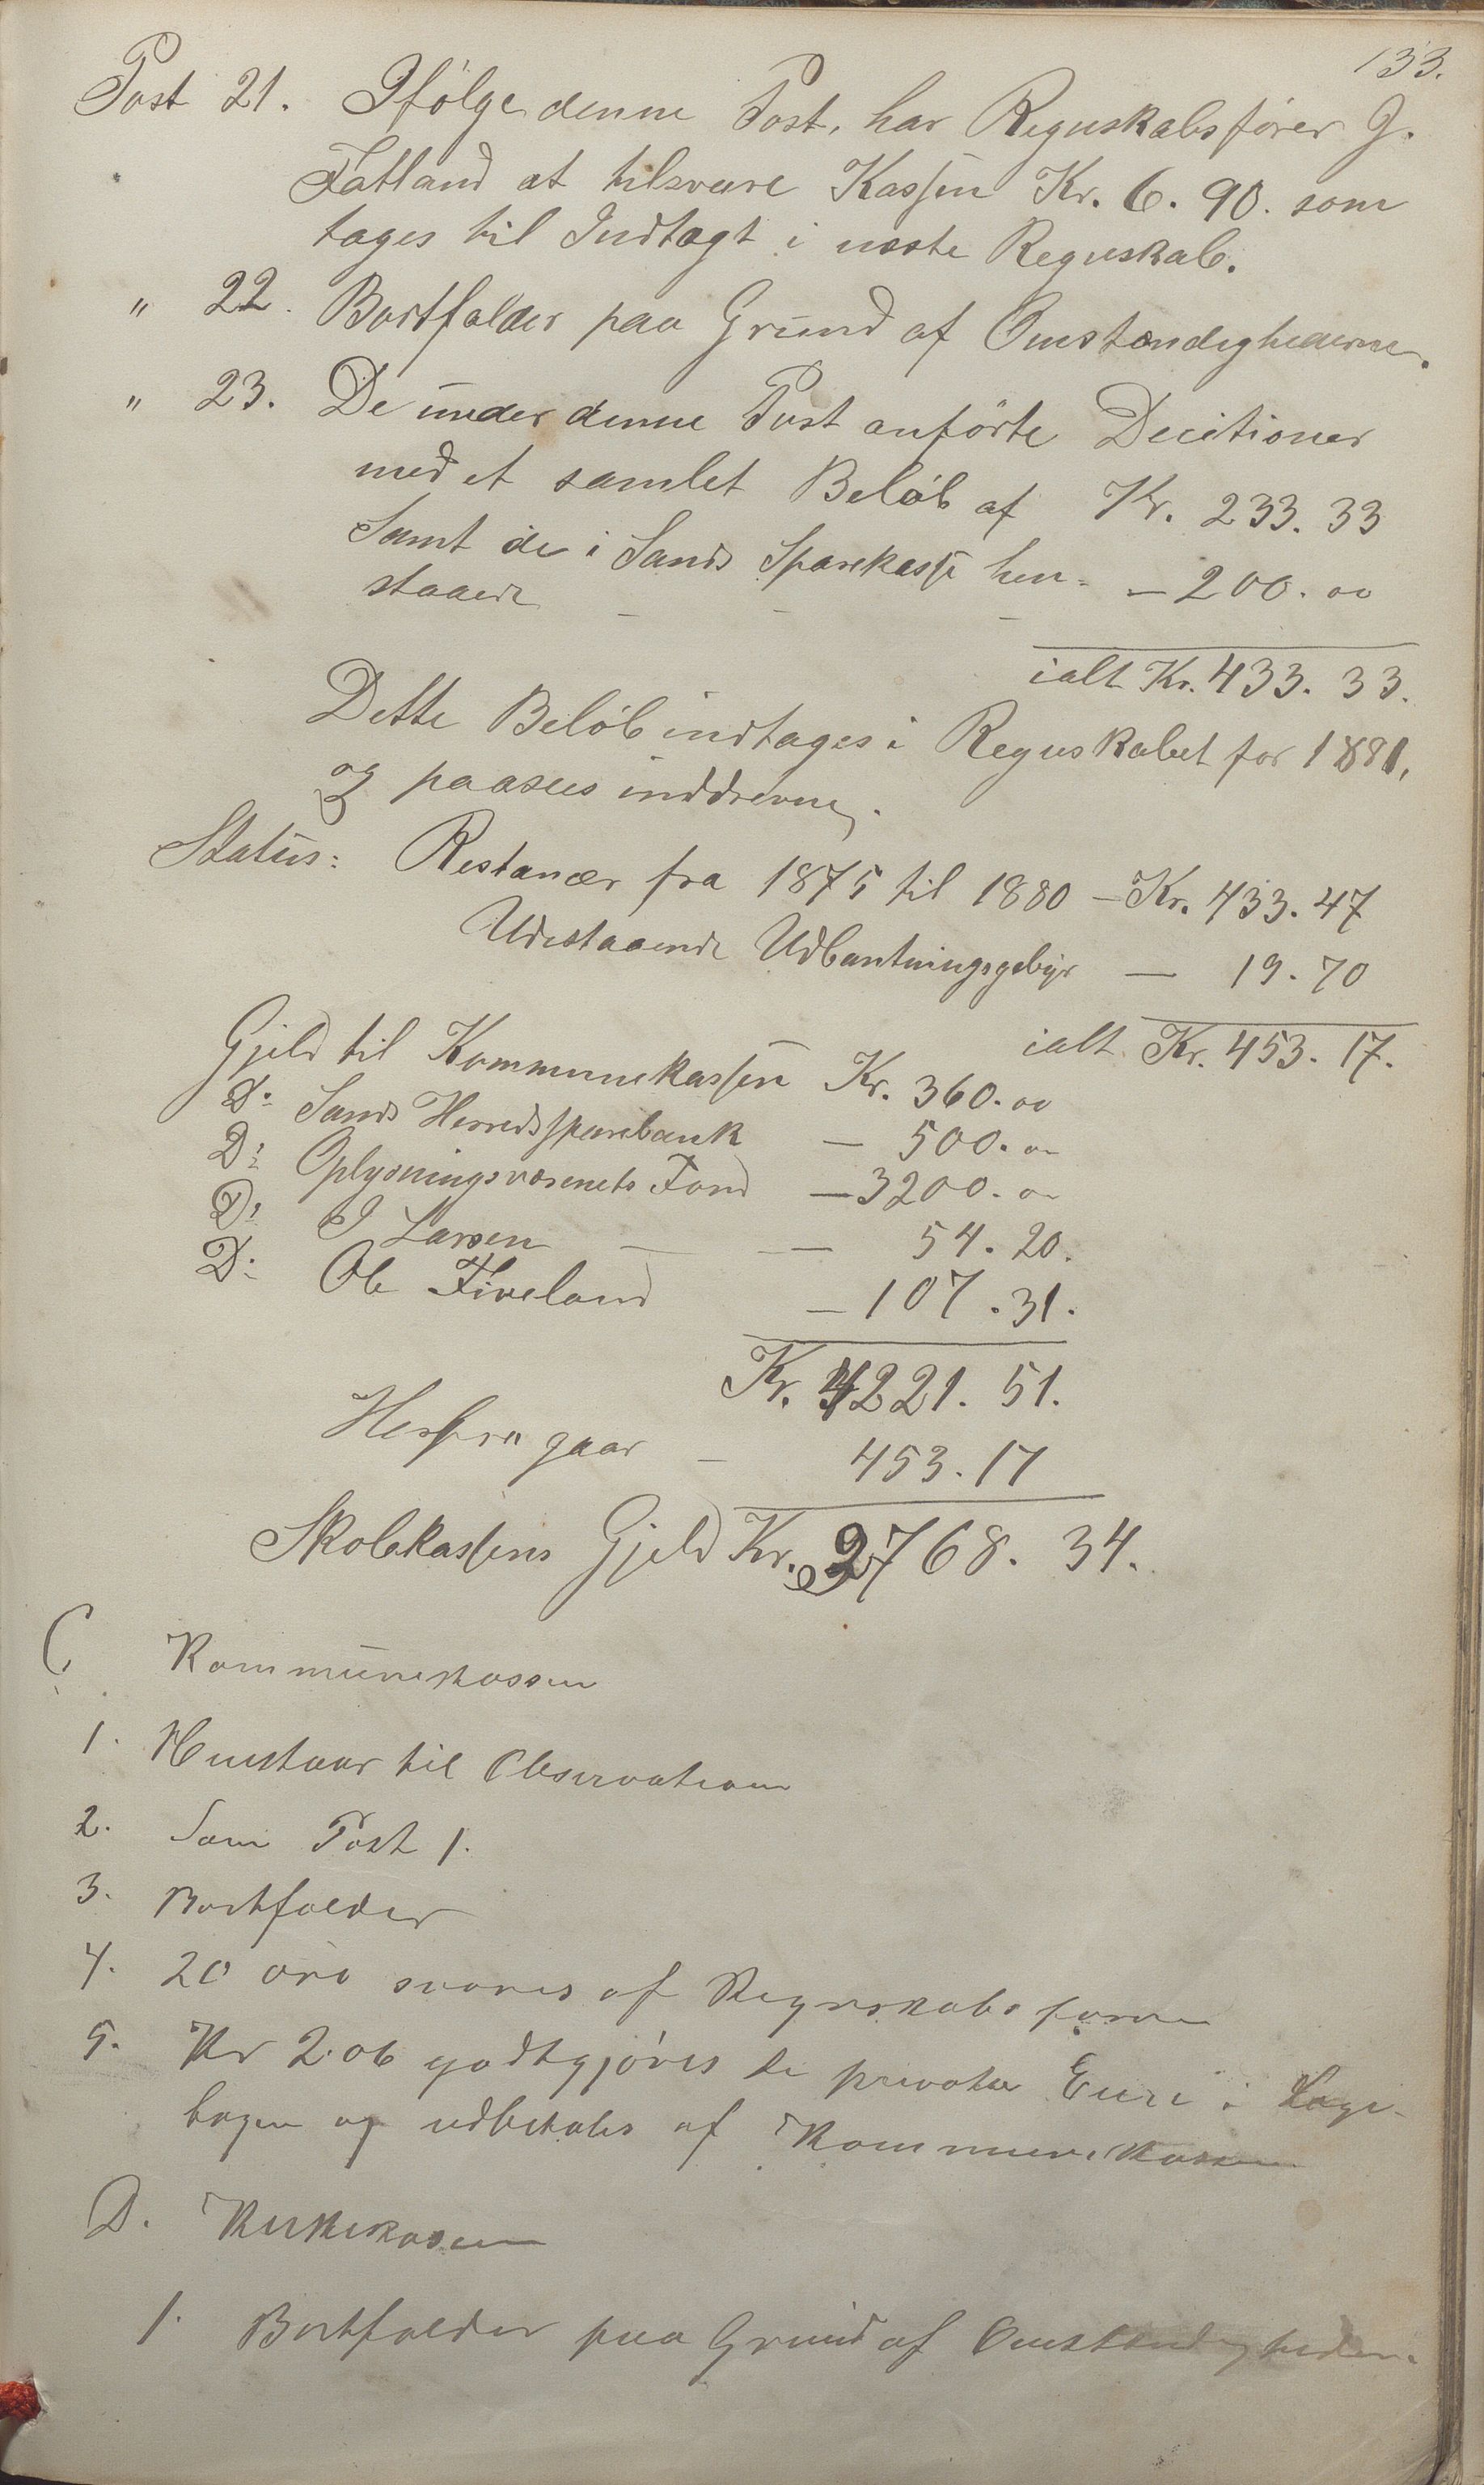 133.
Post 21. Ifölge denne Post, har Regnskabsfører J.
Fatland at tilsvare Kassen Kr. 6. 90. som
tages til Indtægt i næste Regnskab.
" 22. Bortfalder paa Grund af Omstændighederne.
" 23. De under denne Post anførte Decitioner
med et samlet Beløb af Kr. 233. 33
Samt de i Sands Sparekasse hen-
staaende — — — — 200. 00
ialt Kr. 433. 33.
Dette Beløb indtages i Regnskabet for 1881,
og paasees inddrevne.
Status: Restancer fra 1875 til 1880 — Kr. 433. 47
Udestaaende Udpantningsgebyr — 19. 70
ialt Kr. 453. 17.
Gjeld til Kommunekassen Kr. 360. 00
Do Sands Herredssparebank — 500. 00
Do Oplysningsvæsenets Fond — 3200. 00
Do J Larsen — — 54. 20.
Do Ole Fiveland — 107. 31.
Kr. 4221. 51.
Herfra gaar — 453. 17
Skolekassens Gjeld Kr. 3768. 34.
C. Kommunekassen
1. Henstaar til Observation
2. Som Post 1.
3. Bortfalder
4. 20 øre svares af Regnskabsføreren
5. Kr 2.06 godtgjøres de private Eiere i
bogen og udbetales af Kommunekassen
D. Kirkekassen
1. Bortfalder paa Grund af Omstændighederne